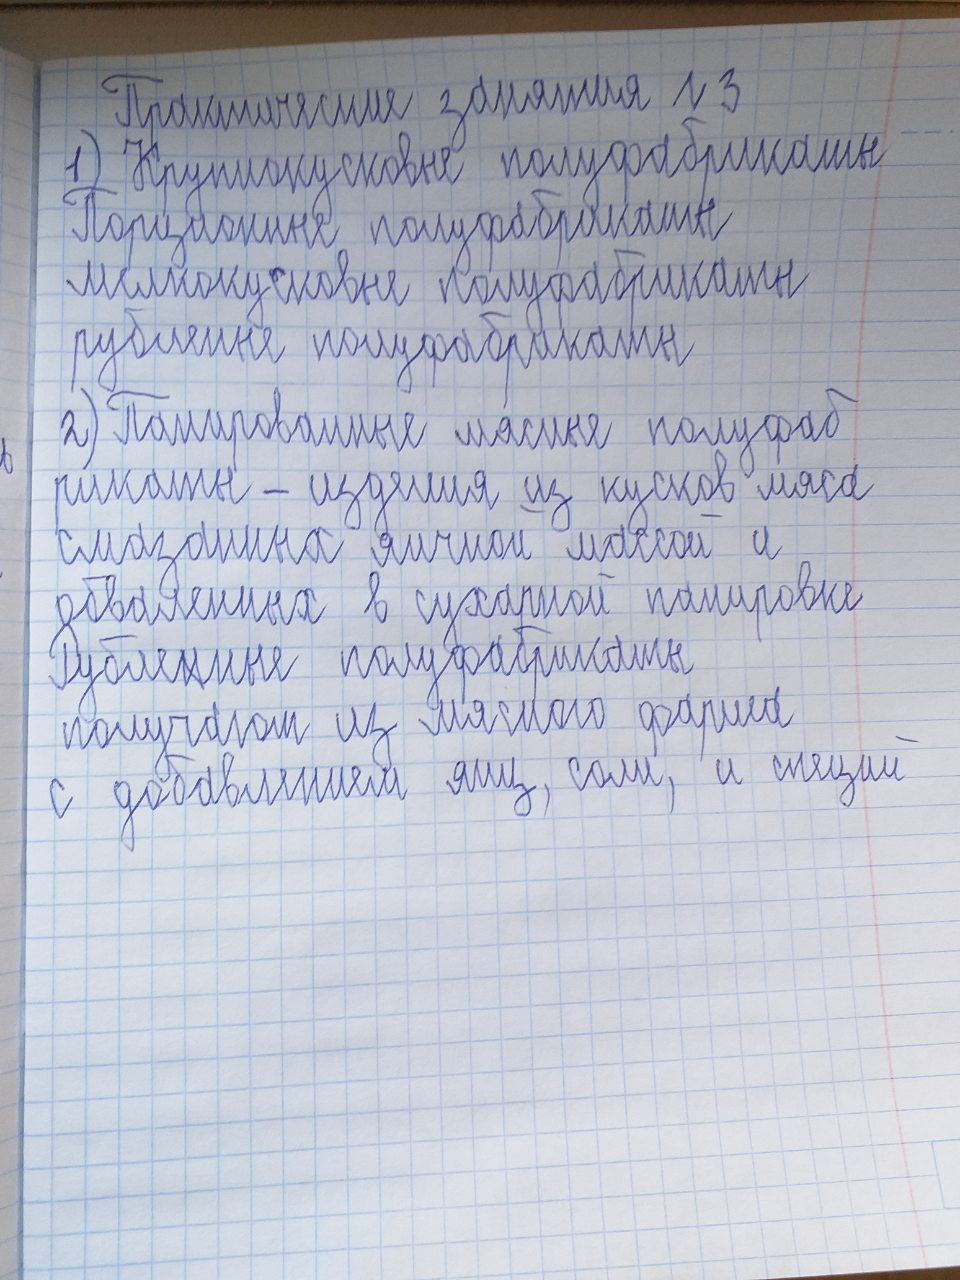 Практические занятия №3
1) Крупнокусковые полуфабрикаты
Порционные полуфабрикаты
мелкокусковые полуфабрикаты
рубленные полуфабрикаты
2) Панированные мясные полуфаб
рикаты - изделия из кусков мяса
смазанных яичной массой и
обваленных в сухарной панировке
Рубленные полуфабрикаты
получают из мясного фарша
с добавлением яиц, соли, и специй